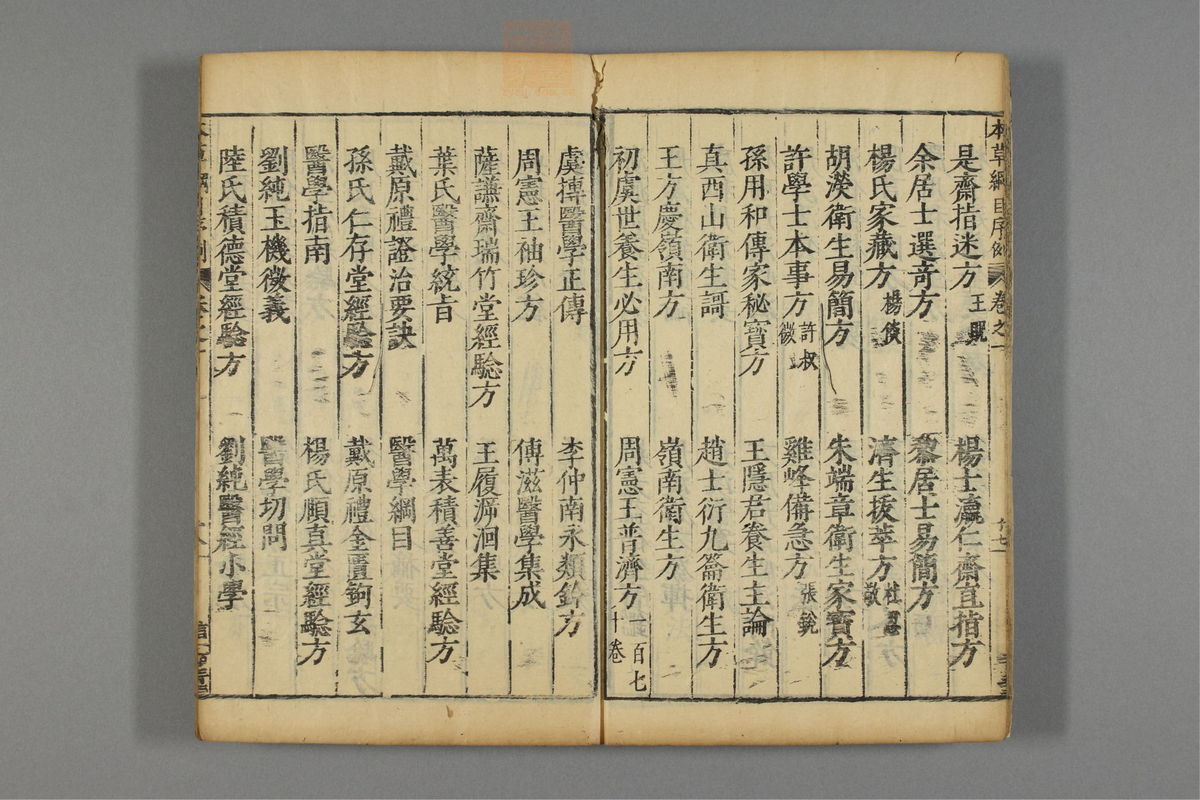 本草綱目序例 卷之一
是齋指迷方 王貺 楊士瀛仁齋直指方
余居士選奇方 黎居士易簡方
楊氏家藏方 楊倓 濟生拔萃方 杜思敬
胡濙衛生易簡方 朱端章衛生家寶方
許學士本事方 許叔微 雞峰備急方 張銳
孫用和傳家秘寶方 王隱君養生主論
真西山衛生歌 趙士衍九籥衛生方
王方慶嶺南方 嶺南衛生方
初虞世養生必用方 周憲王普濟方 一百七十卷
虞摶醫學正傳 李仲南永類鈐方
周憲王袖珍方 傅滋醫學集成
薩謙齋瑞竹堂經驗方 王履泝洄集
葉氏醫學統旨 萬表積善堂經驗方
戴原禮證治要訣 醫學綱目
孫氏仁存堂經驗方 戴原禮金匱鉤玄
醫學指南 楊氏頤真堂經驗方
劉純玉機微義 醫學切問
陸氏積德堂經驗方 劉純醫經小學